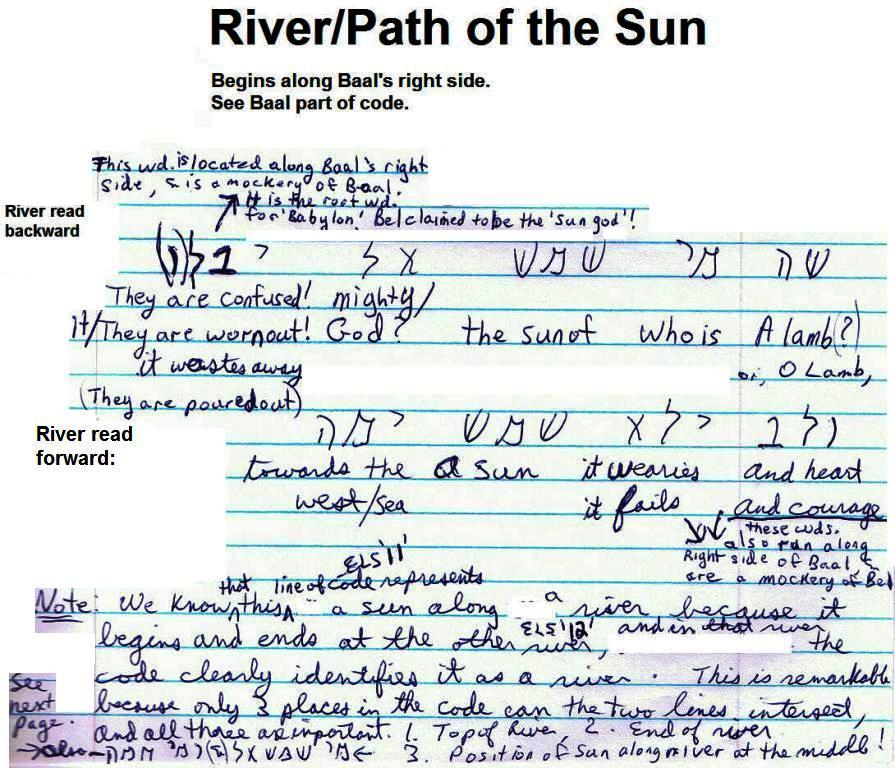 River/Path of the Sun
Begins along Baal's right side.
See Baal part of code.
This wd. is located along Baal's right
side, & is a mockery of Baal.
It is the root wd.
for 'Babylon.' Bel claimed to be the 'sun god'!
River read
backward
שה מי שמש אל י בל(ו)
They are confused! mighty/
It/They are wornout! God? the sun of who is A lamb(?)
it wastes away or, O Lamb,
(They are poured out)
River read
forward:
ולב ילא שמש ימה
towards the a sun it wearies and heart
west/sea it fails and courage
these wds.
also run along
Right side of Baal &
are a mockery of Bel
ELS '11'
that line of code represents
Note: We know this a sun along a river because it
begins and ends at the other ELS '12' river, and in that river the
code clearly identifies it as a river. This is remarkable
because only 3 places in the code can the two lines intersect,
and all three are important. 1. Top of River, 2. End of river
3. Position of Sun along river at the middle!
See
next
page.
also